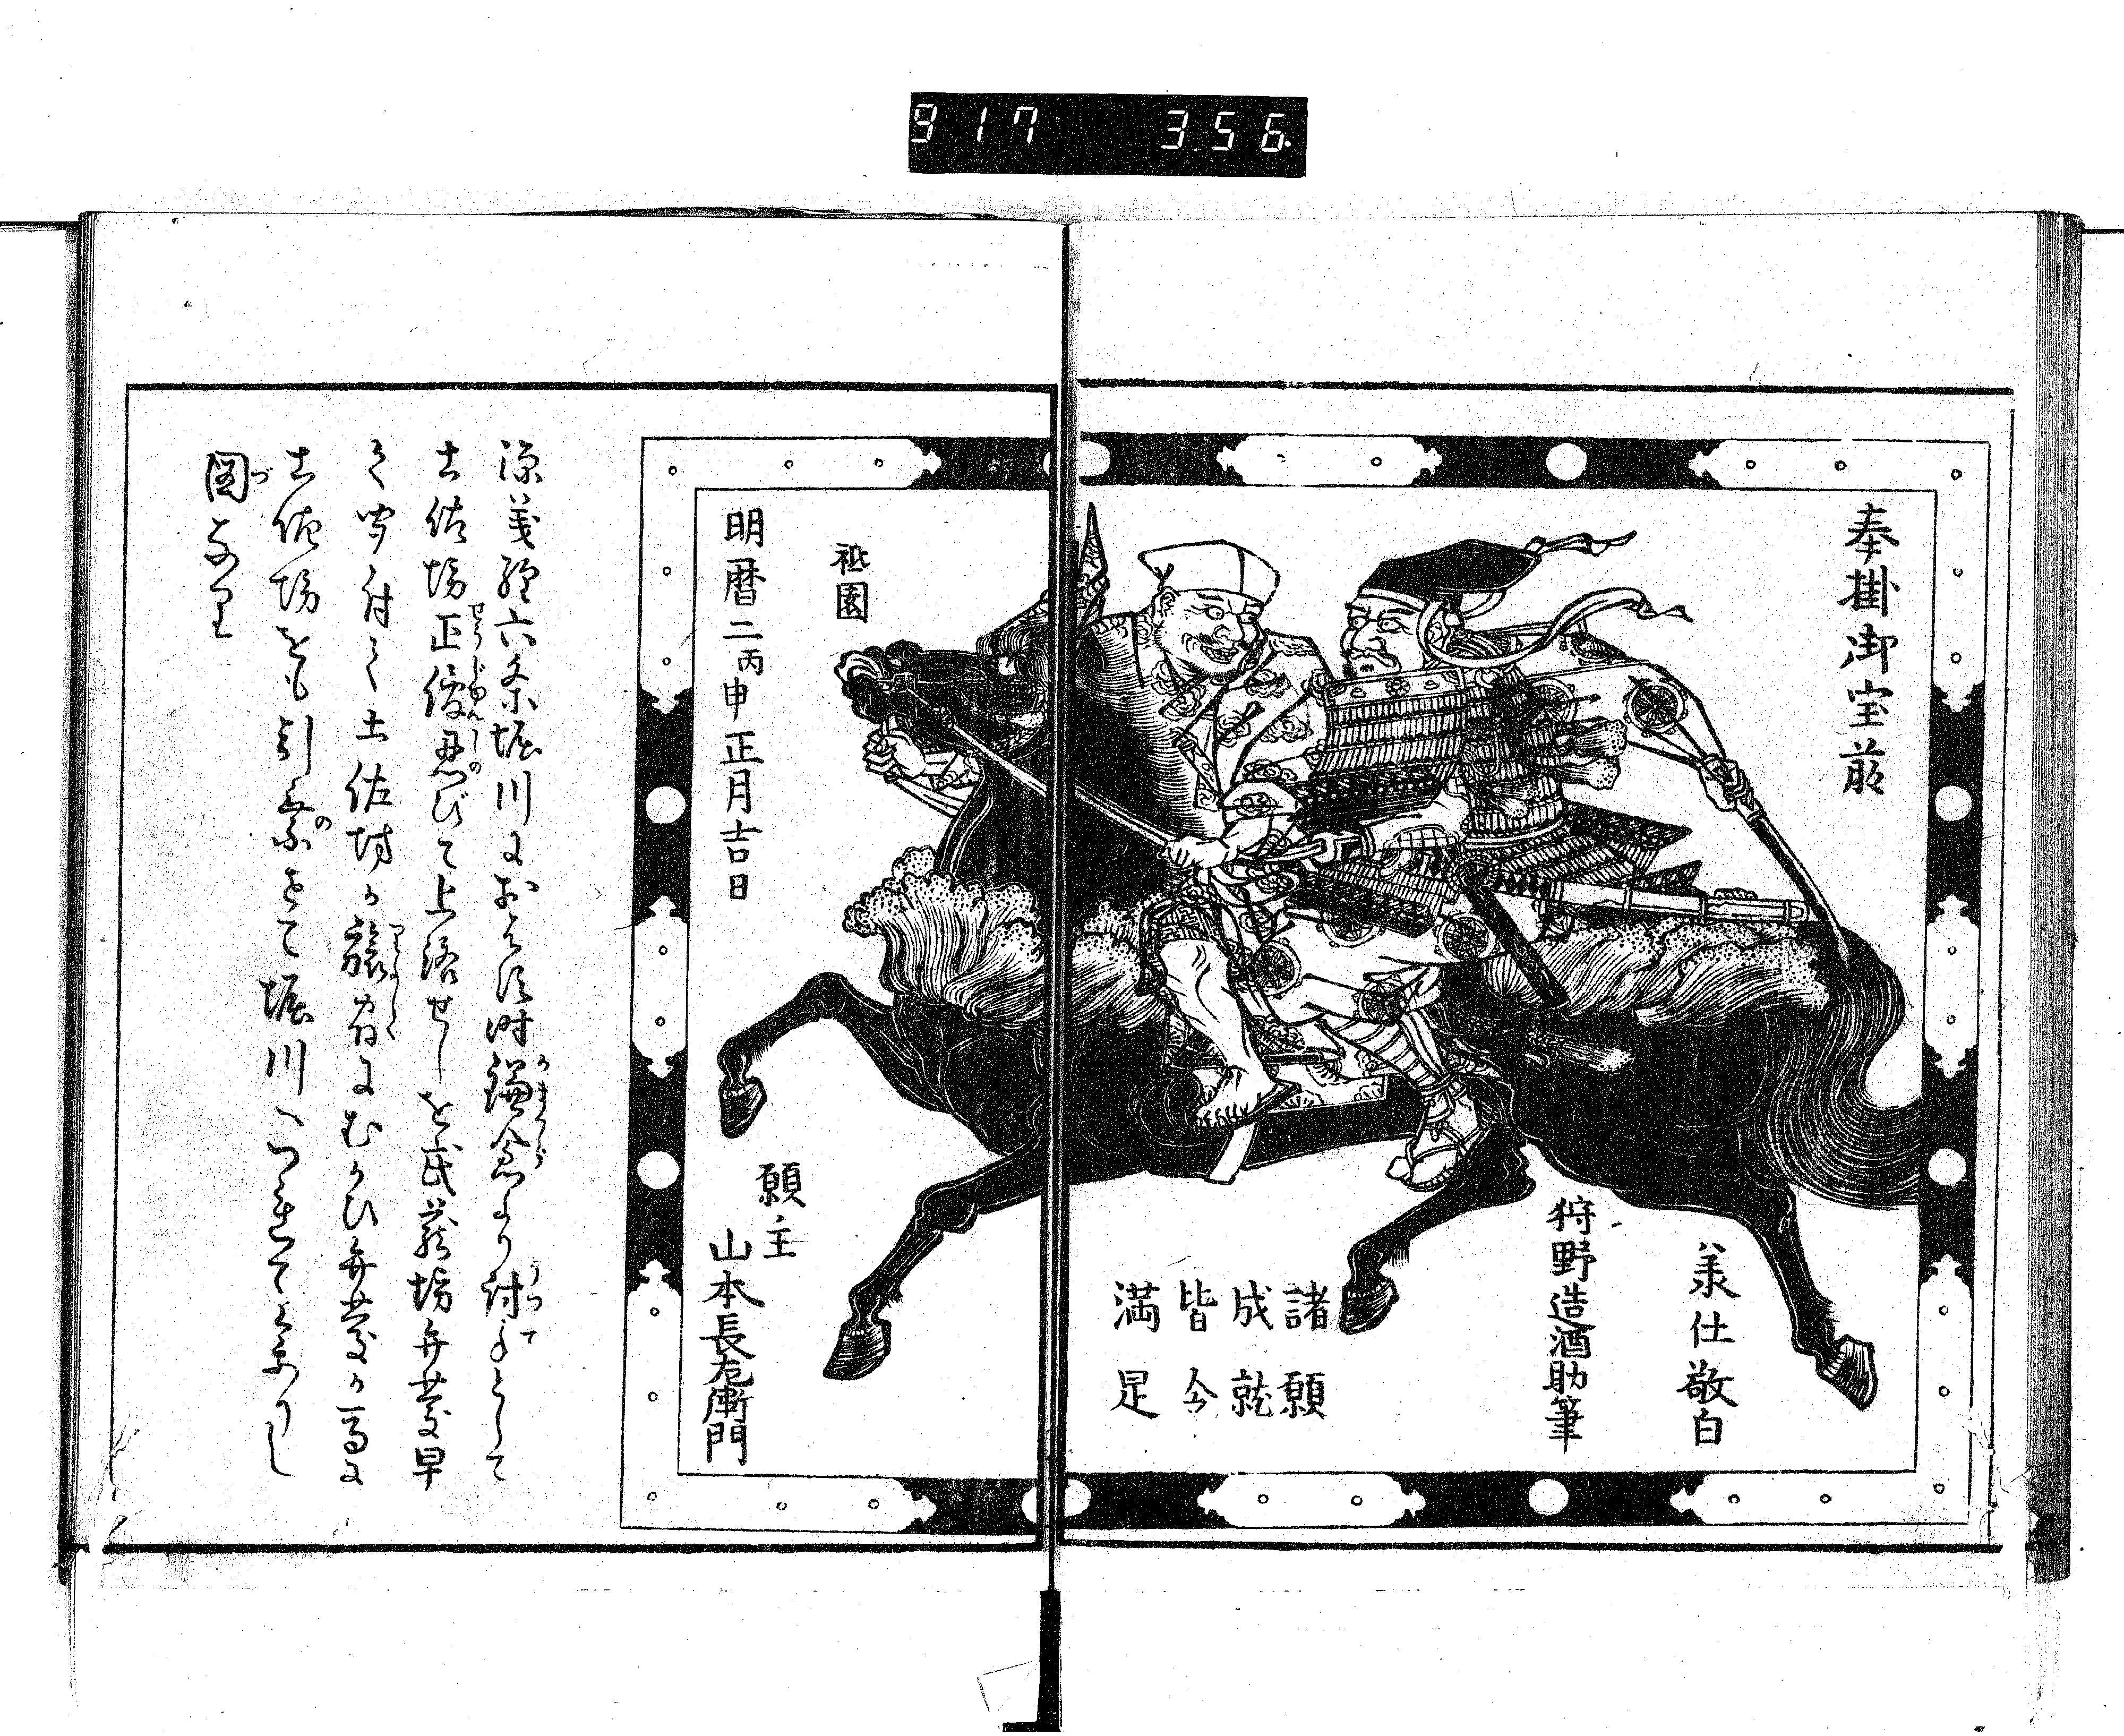 917 356
奉掛御宝前
業仕敬白
狩野造酒助筆
諸願
成就
皆令
満足
祇園
明暦二丙申正月吉日
願主
山本長右衛門
源義経六条堀川におゐて時鎌倉より討手として
土佐坊正俊忍びて上洛せしを武蔵坊弁慶早
く聞付て土佐坊が旅宿にむかひ弁慶が馬に
土佐坊をも引乗せて堀川へつれて参りし
図なり